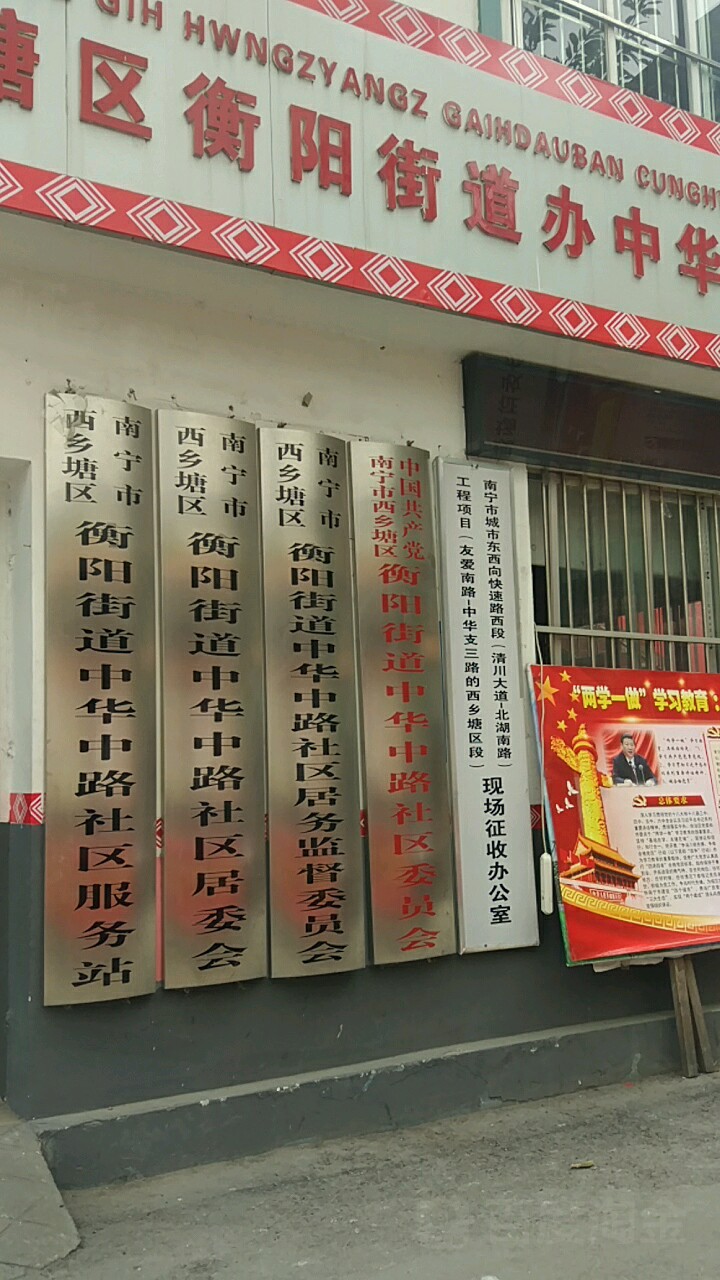 GIH HWNGZYANGZ GAIHDAUBAN CUNGH
塘区衡阳街道办中华
南宁市
西乡塘区
衡阳街道中华中路社区服务站
南宁市
西乡塘区
衡阳街道中华中路社区居委会
南宁市
西乡塘区
衡阳街道中华中路社区居务监督委员会
中国共产党
南宁市西乡塘区
衡阳街道中华中路社区委员会
南宁市城市东西向快速路西段（清川大道-北湖南路）
工程项目（友爱南路-中华支三路的西乡塘区段）
现场征收办公室
“两学一做”学习教育：
总体要求
淘金